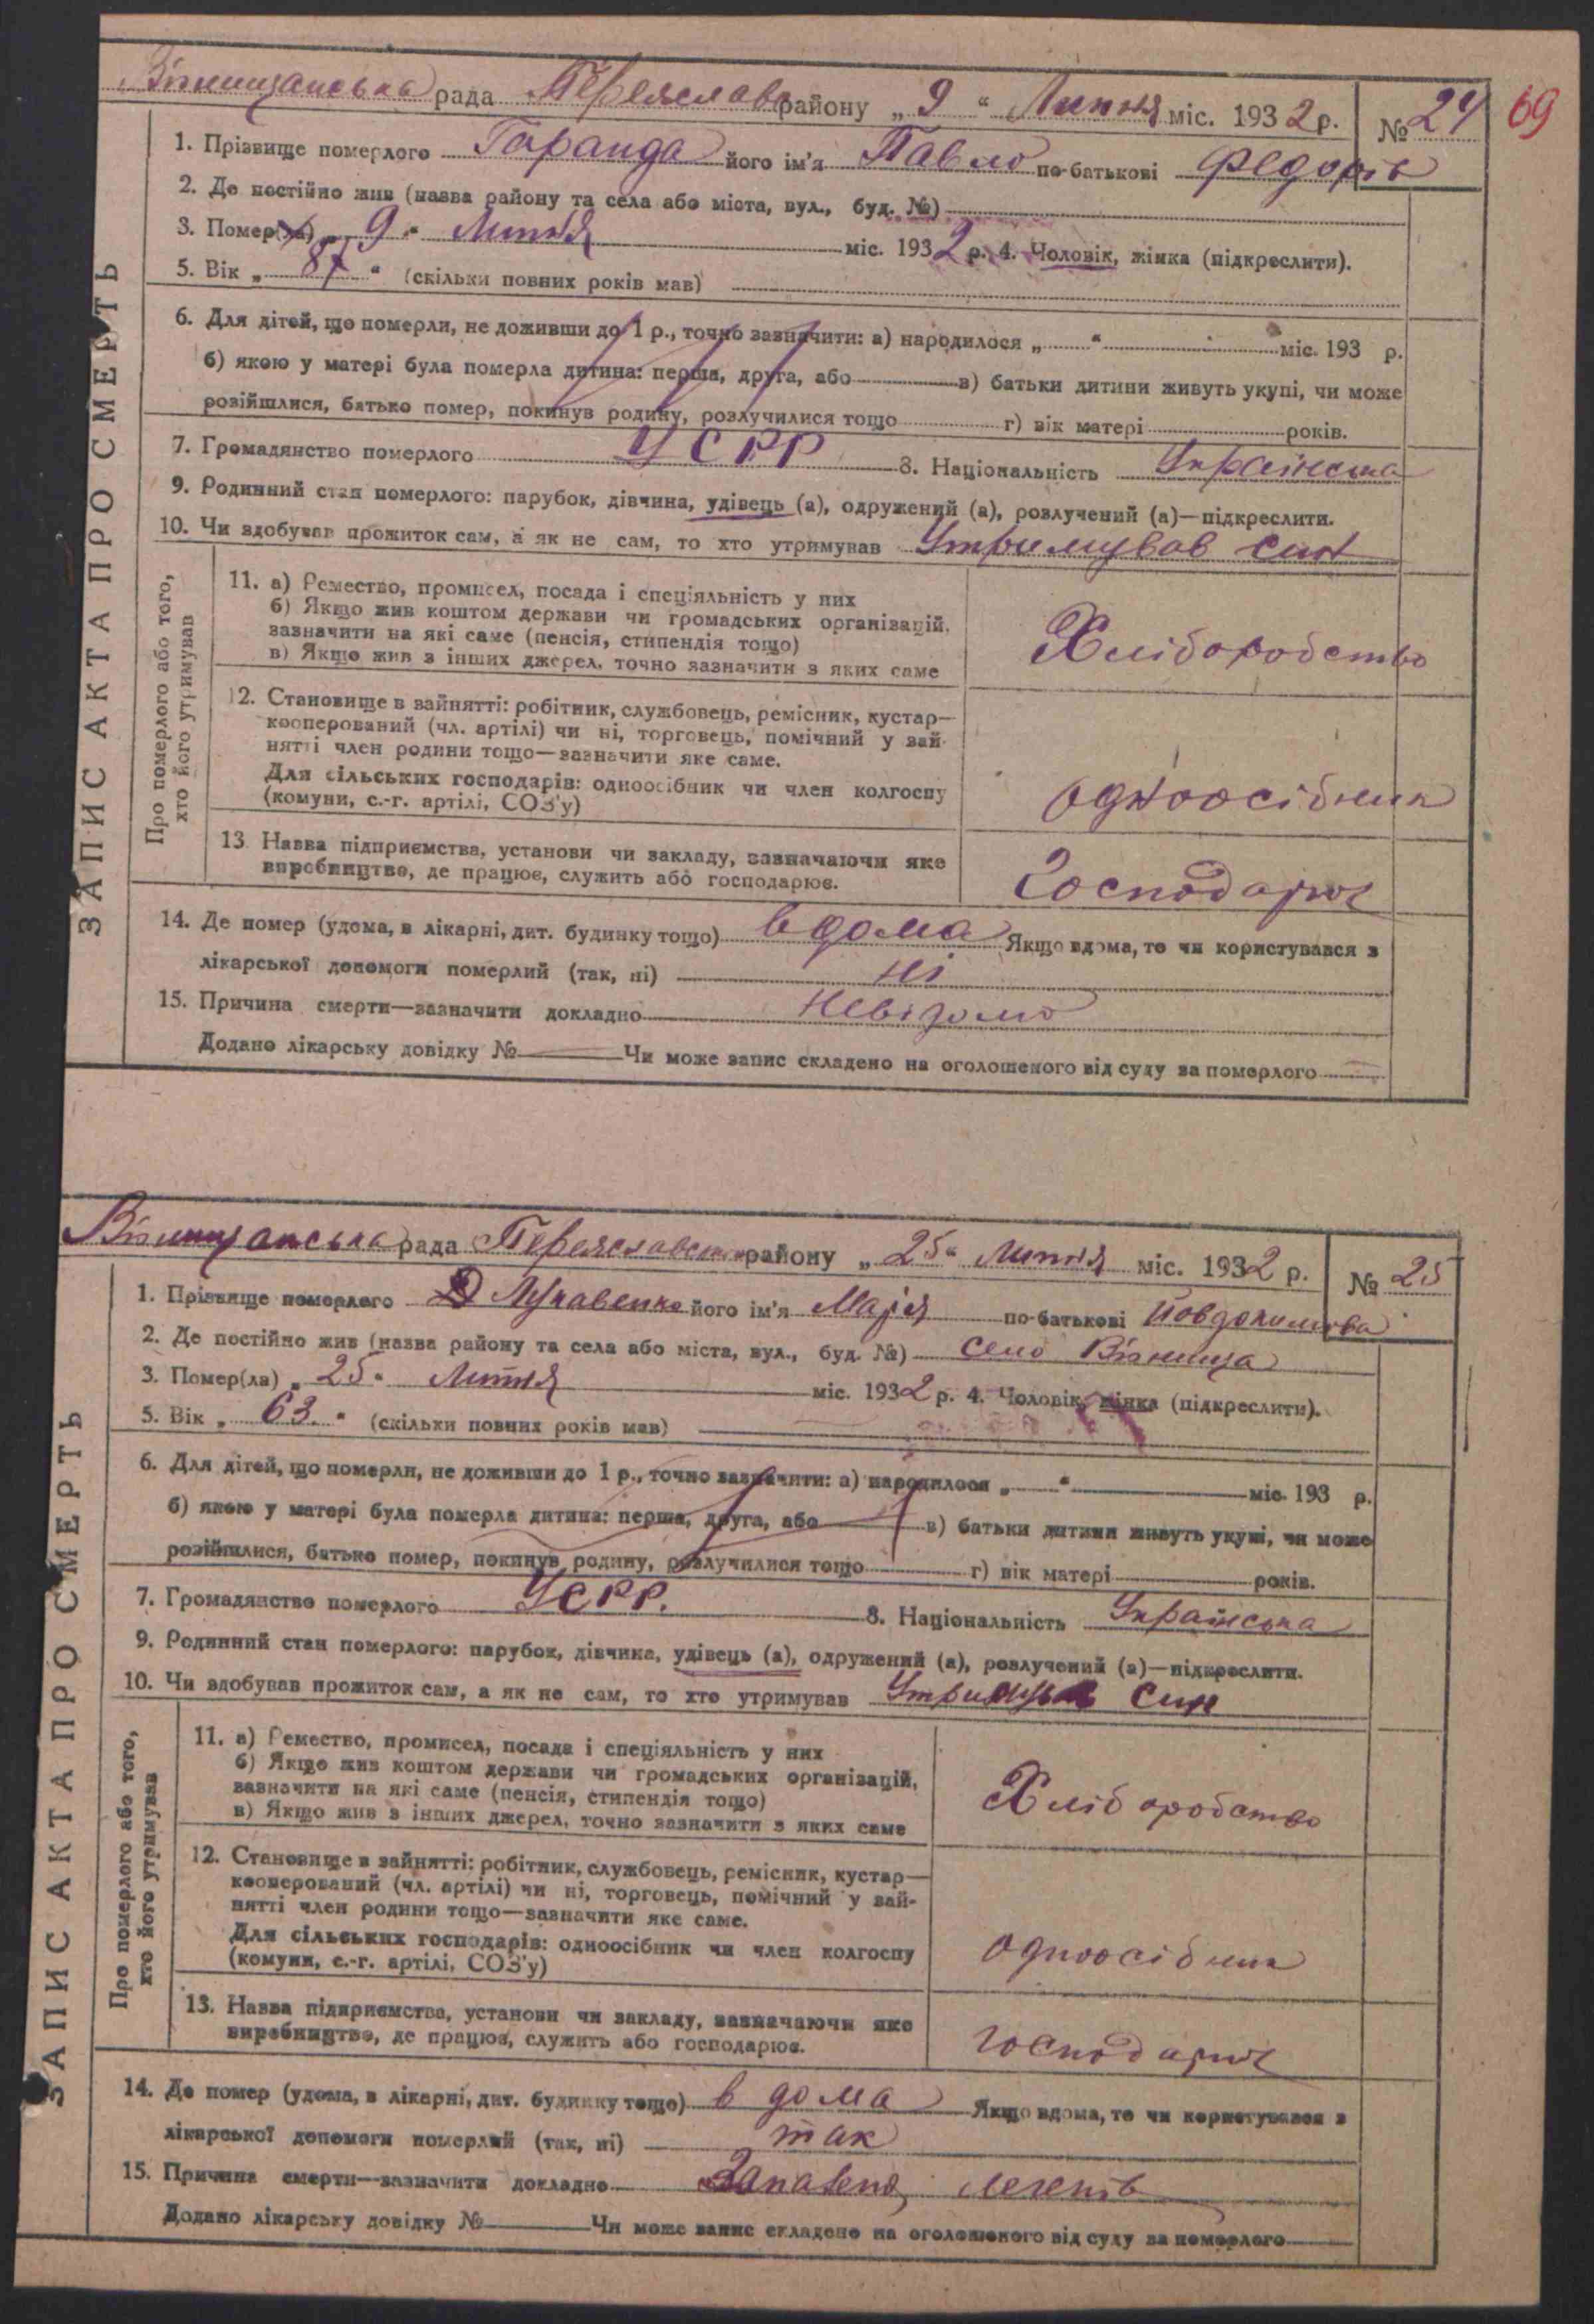 Візницанська рада Переяслав району „ 9 “ Липня міс. 1932 р. № 24
69
1. Прізвище померлого Гаранда його ім'я Павло по-батькові Федорів
2. Де постійно жив (назва району та села або міста, вул., буд. №)
3. Помер(ла) „ 9 “ Липня міс. 1932 р. 4. Чоловік, жінка (підкреслити).
5. Вік „ 87 “ (скільки повних років мав)
6. Для дітей, що померли, не доживши до 1 р., точно зазначити: а) народилося „ “ міс. 193 р.
б) якою у матері була померла дитина: перша, друга, або в) батьки дитини живуть укупі, чи може
розійшлися, батько помер, покинув родину, розлучилися тощо г) вік матері років.
7. Громадянство померлого УСРР 8. Національність Українська
9. Родинний стан померлого: парубок, дівчина, удівець (а), одружений (а), розлучений (а)—підкреслити.
10. Чи здобував прожиток сам, а як не сам, то хто утримував Утримував син
ЗАПИС АКТА ПРО СМЕРТЬ
Про померлого або того,
хто його утримував
11. а) Ремество, промисел, посада і спеціяльність у них
б) Якщо жив коштом держави чи громадських організацій,
зазначити на які саме (пенсія, стипендія тощо)
в) Якщо жив з інших джерел, точно зазначити з яких саме
Хліборобство
12. Становище в зайнятті: робітник, службовець, ремісник, кустар—
кооперований (чл. артілі) чи ні, торговець, помічний у зай-
нятті член родини тощо—зазначити яке саме.
Для сільських господарів: одноосібник чи член колгоспу
(комуни, с.-г. артілі, СОЗ'у)
одноосібник
13. Назва підприємства, установи чи закладу, зазначаючи яке
виробництво, де працює, служить або господарює.
Господарює
14. Де помер (удома, в лікарні, дит. будинку тощо) вдома Якщо вдома, то чи користувався з
лікарської допомоги померлий (так, ні) ні
15. Причина смерти—зазначити докладно Невідомо
Додано лікарську довідку № Чи може запис складено на оголошеного від суду за померлого
Візницанська рада Переяславськ району „ 25 “ Липня міс. 1932 р. № 25
1. Прізвище померлого Лукавенко його ім'я Марія по-батькові Йовдокимова
2. Де постійно жив (назва району та села або міста, вул., буд. №) село Візниця
3. Помер(ла) „ 25 “ Липня міс. 1932 р. 4. Чоловік, жінка (підкреслити).
5. Вік „ 63. “ (скільки повних років мав)
6. Для дітей, що померли, не доживши до 1 р., точно зазначити: а) народилося „ “ міс. 193 р.
б) якою у матері була померла дитина: перша, друга, або в) батьки дитини живуть укупі, чи може
розійшлися, батько помер, покинув родину, розлучилися тощо г) вік матері років.
7. Громадянство померлого УСРР. 8. Національність Українська
9. Родинний стан померлого: парубок, дівчина, удівець (а), одружений (а), розлучений (а)—підкреслити.
10. Чи здобував прожиток сам, а як не сам, то хто утримував Утримував син
ЗАПИС АКТА ПРО СМЕРТЬ
Про померлого або того,
хто його утримував
11. а) Ремество, промисел, посада і спеціяльність у них
б) Якщо жив коштом держави чи громадських організацій,
зазначити на які саме (пенсія, стипендія тощо)
в) Якщо жив з інших джерел, точно зазначити з яких саме
Хліборобство
12. Становище в зайнятті: робітник, службовець, ремісник, кустар—
кооперований (чл. артілі) чи ні, торговець, помічний у зай-
нятті член родини тощо—зазначити яке саме.
Для сільських господарів: одноосібник чи член колгоспу
(комуни, с.-г. артілі, СОЗ'у)
одноосібник
13. Назва підприємства, установи чи закладу, зазначаючи яке
виробництво, де працює, служить або господарює.
господарює
14. Де помер (удома, в лікарні, дит. будинку тощо) в дома Якщо вдома, то чи користувався з
лікарської допомоги померлий (так, ні) так
15. Причина смерти—зазначити докладно Запаленя легенів
Додано лікарську довідку № Чи може запис складено на оголошеного від суду за померлого